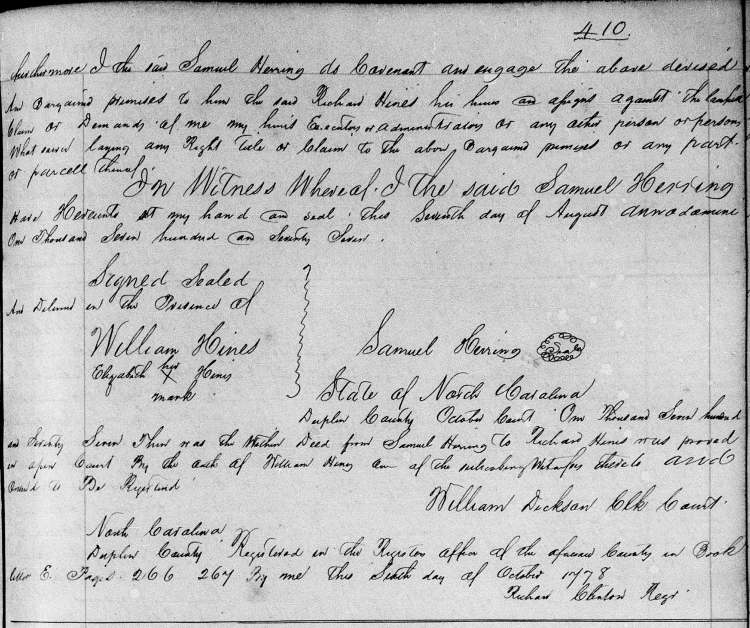 410.
furthermore I the said Samuel Herring do Covenant and engage the above devised
And Bargained premises to him the said Richard Hines his heirs and assigns against the lawfull
Claim or Demands of me my heirs Executors or administrators or any other person or persons
What soever laying any Right Title or Claim to the above Bargained premises or any part
or parcell thereof
In Witness Whereof I the said Samuel Herring
Have Hereunto set my hand and seal this Seventh day of August annodomine
One Thousand Seven hundred and Seventy Seven.
Signed Sealed
And Delivered in the Presence of
William Hines
Elizabeth her X Hines
mark
Samuel Herring Seal
State of North Carolina
Duplin County October Court One Thousand Seven hundred
and Seventy Seven Then was the Within Deed from Samuel Herring to Richard Hines was proved
in open Court By the oath of William Hines one of the subscribing Witnesses thereto and
Ordered to Be Registered
William Dickson Clk Court.
North Carolina
Duplin County Registered in the Registers office of the aforesaid County in Book
letter E. Pages 266 267 By me This Sixth day of October 1778
Richard Clinton Regr